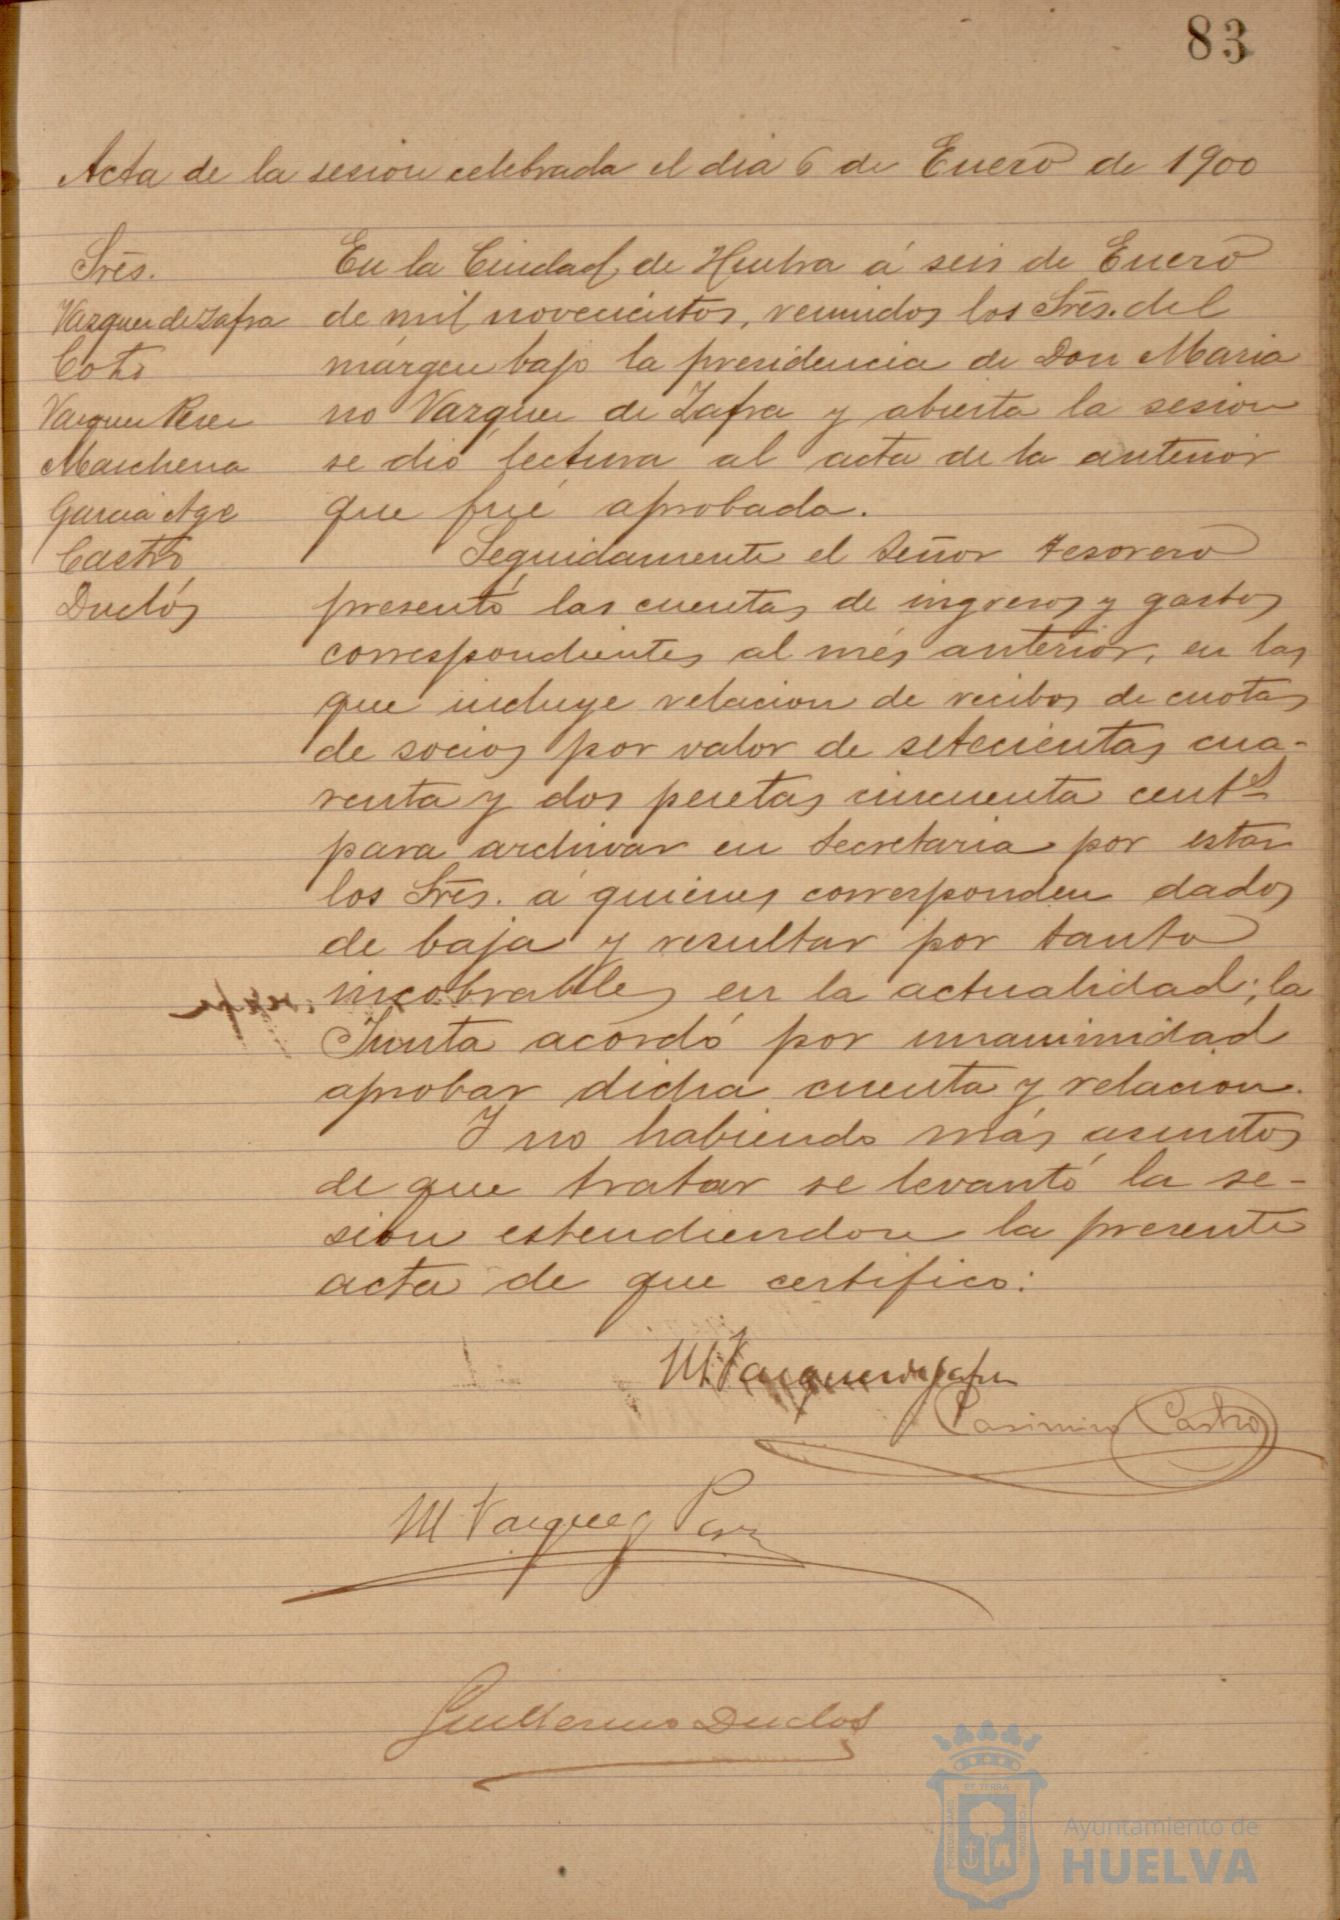 83
Acta de la sesion celebrada el dia 6 de Enero de 1900
Srēs.
Vazquez de Zafra
Coto
Vazquez Perez
Marchena
Garcia Age
Castro
Duclós
En la Ciudad de Huelva á seis de Enero
de mil novecientos, reunidos los Srēs. del
márgen bajo la presidencia de Don Maria
no Vazquez de Zafra y abierta la sesion
se dió lectura al acta de la anterior
que fué aprobada.
Seguidamente el Señor tesorero
presentó las cuentas de ingresos y gastos
correspondientes al més anterior, en las
que incluye relacion de recibos de cuotas
de socios por valor de setecientas cua-
renta y dos pesetas cincuenta centˢ
para archivar en Secretaria por estar
los Srēs. á quienes corresponden dados
de baja y resultar por tanto
incobrables en la actualidad; la
Junta acordó por unanimidad
aprobar dicha cuenta y relacion.
Y no habiendo más asuntos
de que tratar se levantó la se-
sion estendiendose la presente
acta de que certifico:
M Vazquez de Zafra
Casimiro Castro
M Vazquez Perez
Guillermo Duclos
ET TERRÆ
Ayuntamiento de
HUELVA